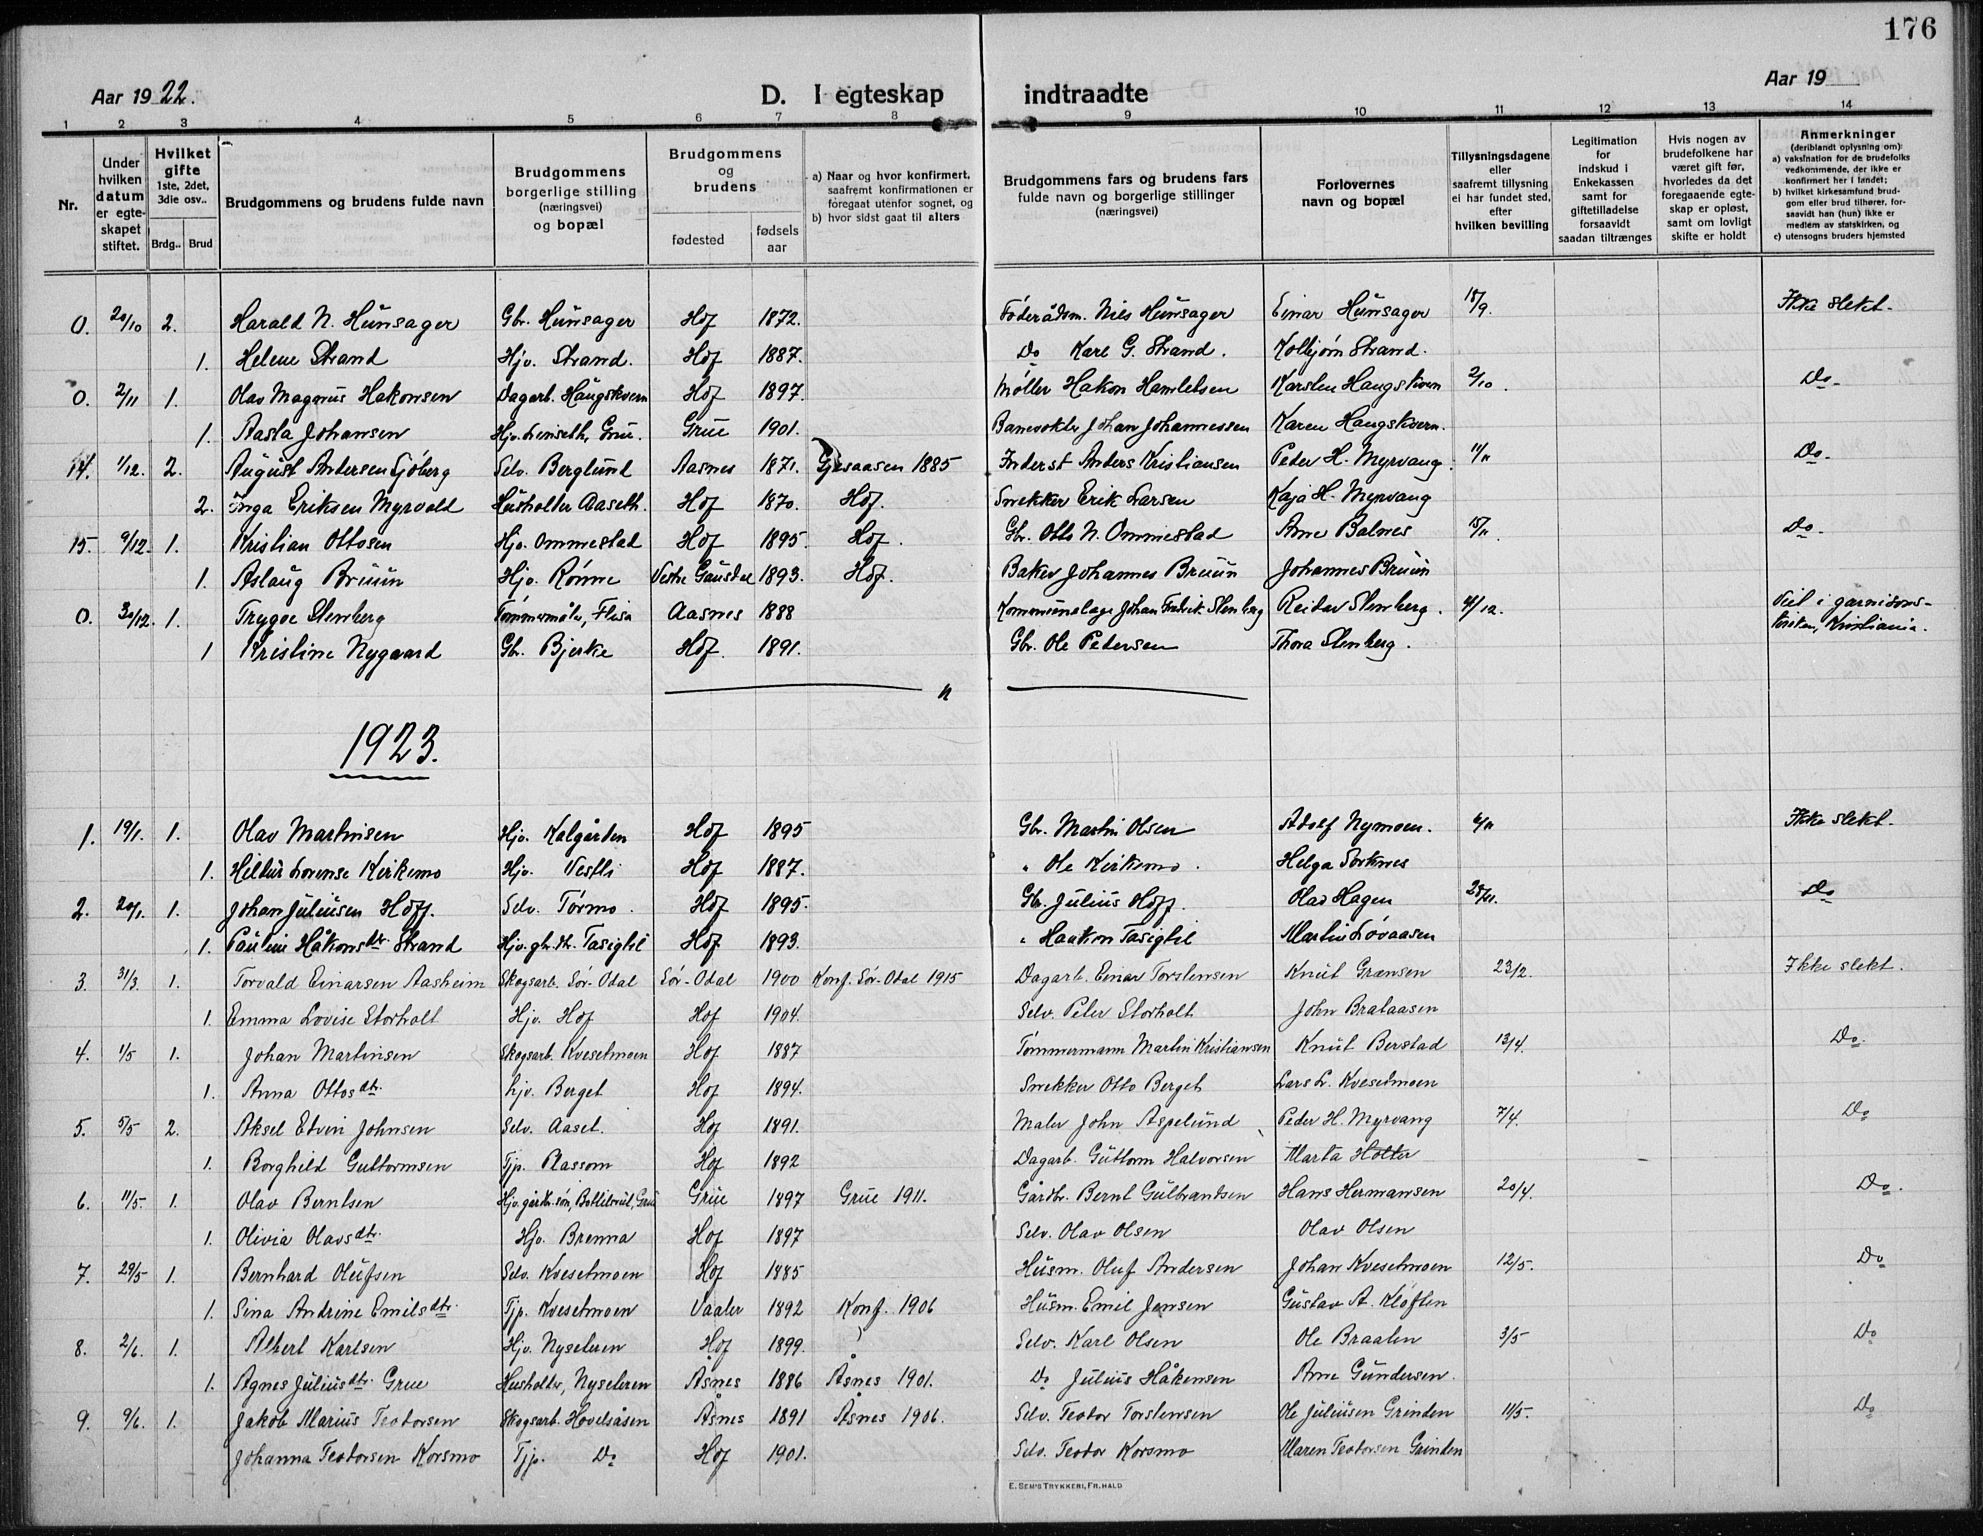 176
Aar 1922.
D. I egteskap indtraadte
Aar 19
1 2 3 4 5 6 7 8 9 10 11 12 13 14
Nr.
Under hvilken datum er egte-skapet stiftet.
Hvilket gifte 1ste, 2det, 3die osv..
Brdg.. Brud
Brudgommens og brudens fulde navn
Brudgommens borgerlige stilling (næringsvei) og bopæl
Brudgommens og brudens
fødested
fødsels aar
a) Naar og hvor konfirmert, saafremt konfirmationen er foregaat utenfor sognet, og
b) hvor sidst gaat til alters
Brudgommens fars og brudens fars fulde navn og borgerlige stillinger (næringsvei)
Forlovernes navn og bopæl
Tillysningsdagene eller saafremt tillysning ei har fundet sted, efter hvilken bevilling
Legitimation for indskud i Enkekassen samt for giftetilladelse forsaavidt saadan tiltrænges
Hvis nogen av brudefolkene har været gift før, hvorledes da det foregaaende egte-skap er opløst, samt om lovligt skifte er holdt
Anmerkninger (deriblandt oplysning om):
a) vaksination for de brudefolks vedkommende, der ikke er konfirmert her i landet;
b) hvilket kirkesamfund brud-gom eller brud tilhører, for-saavidt han (hun) ikke er medlem av statskirken, og
c) utensogns bruders hjemsted
0. 20/10 2. Harald N. Hunsager Gbr. Hunsager Hof 1872. Föderådsm. Nils Hunsager Einar Hunsager 18/9. Ikke slekt.
1. Helene Strand Hjv. Strand. Hof 1887. Do Karl G. Strand. Kolbjørn Strand.
0. 2/11 1. Olav Magnus Hakonsen Dagarb. Haugskvern Hof 1897. Møller Hakon Hamletsen Karsten Haugskvern 2/10. Do.
1. Aasta Johansen Hjv. Lenseth, Grue. Grue 1901. Banevokter Johan Johannessen Karen Haugskvern.
14. 1/12. 2. August Andersen Sjöberg Selv. Berglund Aasnes 1871. Gjesaasen 1885 Inderst Anders Kristiansen Peder H. Myrvang. 11/11 Do.
2. Inga Eriksen Myrvold Husholder Aaseth. Hof 1870. Hof. Snekker Erik Larsen Kaja H. Myrvang
15. 9/12. 1. Kristian Ottosen Hjv. Ommestad Hof 1895. Hof. Gbr. Otto N. Ommestad Arne Balnes 15/11. Do.
1. Aslaug Bruun Hjv. Rönne Vestre Gausdal 1893. Hof. Baker Johannes Bruun Johannes Bruun
0. 30/12. 1. Trygve Stenberg Tømmermåler, Flisa Aasnes 1888 Kommunelæge Johan Fredrik Stenberg Reidar Stenberg. 4/12. Viet i garnisons-
kirken, Kristiania.
1 Kristine Nygaard Gbr. Bjerke Hof. 1891. Gbr. Ole Pedersen Thora Stenberg.
1923.
1. 19/1. 1. Olav Martinsen Hjv. Kalgården Hof 1895 Gbr. Martin Olsen Adolf Nymoen. 6/11 Ikke slekt.
1. Hildur Lorense Kirkemo Hjv. Vestli Hof 1887. " Ole Kirkemo. Helga Sorknes
2. 20/1. 1. Johan Juliusen Hoff. Selv. Törmo. Hof 1895. Gbr. Julius Hoff. Olav Hagen 28/11. Do
1. Pauline Håkonsdtr. Strand Hjv. gbr. dtr. Tasigtil Hof 1893. " Haakon Tasigtil Martin Lövaasen
3. 31/3. 1. Torvald Einarsen Aasheim Skogsarb. Sör-Odal Sör-Odal 1900 Konf. Sör-Odal 1915 Dagarb. Einar Torstensen Knut Grænsen 23/2. Ikke slekt.
1. Emma Lovise Storholt Hjv. Hof Hof 1904. Selv. Peter Storholt John Brataasen
4. 1/5 1. Johan Martinsen Skogsarb. Kvesetmoen Hof 1887 Tömmermann Martin Kristiansen Knut Berstad 13/4. Do.
1. Anna Ottosdtr. hjv. Berget Hof 1894. Snekker Otto Berget Lars L. Kvesetmoen
5. 5/5 2. Aksel Edvin Johnsen Selv. Aaset. Hof 1891. Maler John Aspelund Peder H. Myrvang 7/4. Do
1. Borghild Guttormsen Tjp. Plassom Hof 1892 Dagarb. Guttorm Halvorsen Marta Holter
6. 11/5. 1. Olav Berntsen Hjv. gårdbr. søn, Bottilsrud, Grue Grue 1897 Grue 1911. Gårdbr. Bernt Gulbrandsen Hans Hermansen 20/4. Do.
1. Olivia Olavsdtr. Hjv. Brenna Hof 1897 Selv. Olav Olsen Olav Olsen
7. 29/5 1. Bernhard Olufsen Selv. Kvesetmoen Hof 1885 Husm. Oluf Andersen Johan Kvesetmoen 12/5. Do
1. Sina Andrine Emilsdtr. Tjp. Kvesetmoen Vaaler 1892 Konf. 1906 Husm. Emil Jensen Gustav A. Klöften
8. 2/6. 1. Albert Karlsen Hjv. Nyseteren Hof 1899. Selv. Karl Olsen Ole Braaten 3/5 Do
1. Agnes Juliusdtr. Grue Husholder, Nyseteren Åsnes 1886 Åsnes 1901. Do Julius Håkensen Arne Gundersen.
9. 9/6. 1. Jakob Marius Teodorsen Skogsarb. Hovelsåsen Åsnes 1891 Åsnes 1906. Selv. Teodor Torstensen Ole Juliusen Grinden 11/5. Do
Johanna Teodorsen Korsmo Tjp. Do Hof 1901. Selv. Teodor Korsmo Maren Teodorsen Grinden
E. SEM'S TRYKKERI, FR.HALD